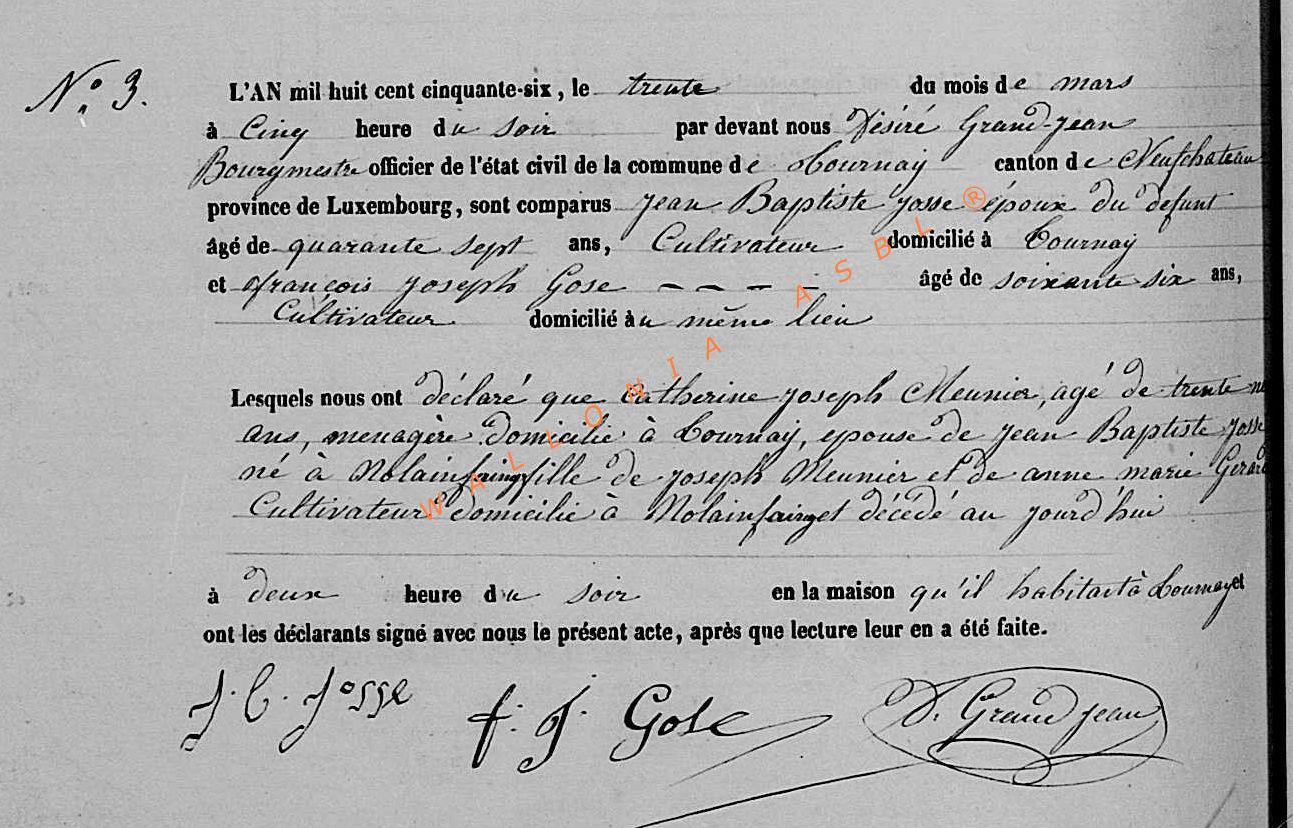 N.° 3.
L'AN mil huit cent cinquante-six, le trente du mois de mars
à Cinq heure du soir par devant nous Désiré Grand-jean
Bourgmestre officier de l'état civil de la commune de Tournay canton de Neufchateau
province de Luxembourg, sont comparus jean Baptiste josse époux du defunt
âgé de quarante sept ans, Cultivateur domicilié à Tournay
et françois joseph Gose - - - - âgé de soixante six ans,
Cultivateur domicilié au même lieu
Lesquels nous ont déclaré que Catherine joseph Meunier, agé de trente
ans, menagère domicilié à Tournay, epouse de jean Baptiste josse
né à Molainfaing fille de joseph Meunier et de anne marie Gerard
Cultivateur domicilié à Molainfaing et décédé au jourd'hui
à deux heure du soir en la maison qu'il habitait à Tournay et
ont les déclarants signé avec nous le présent acte, après que lecture leur en a été faite.
J. B. Josse f. J. Gose D. Grand jean
WALLONIA ASBL ®